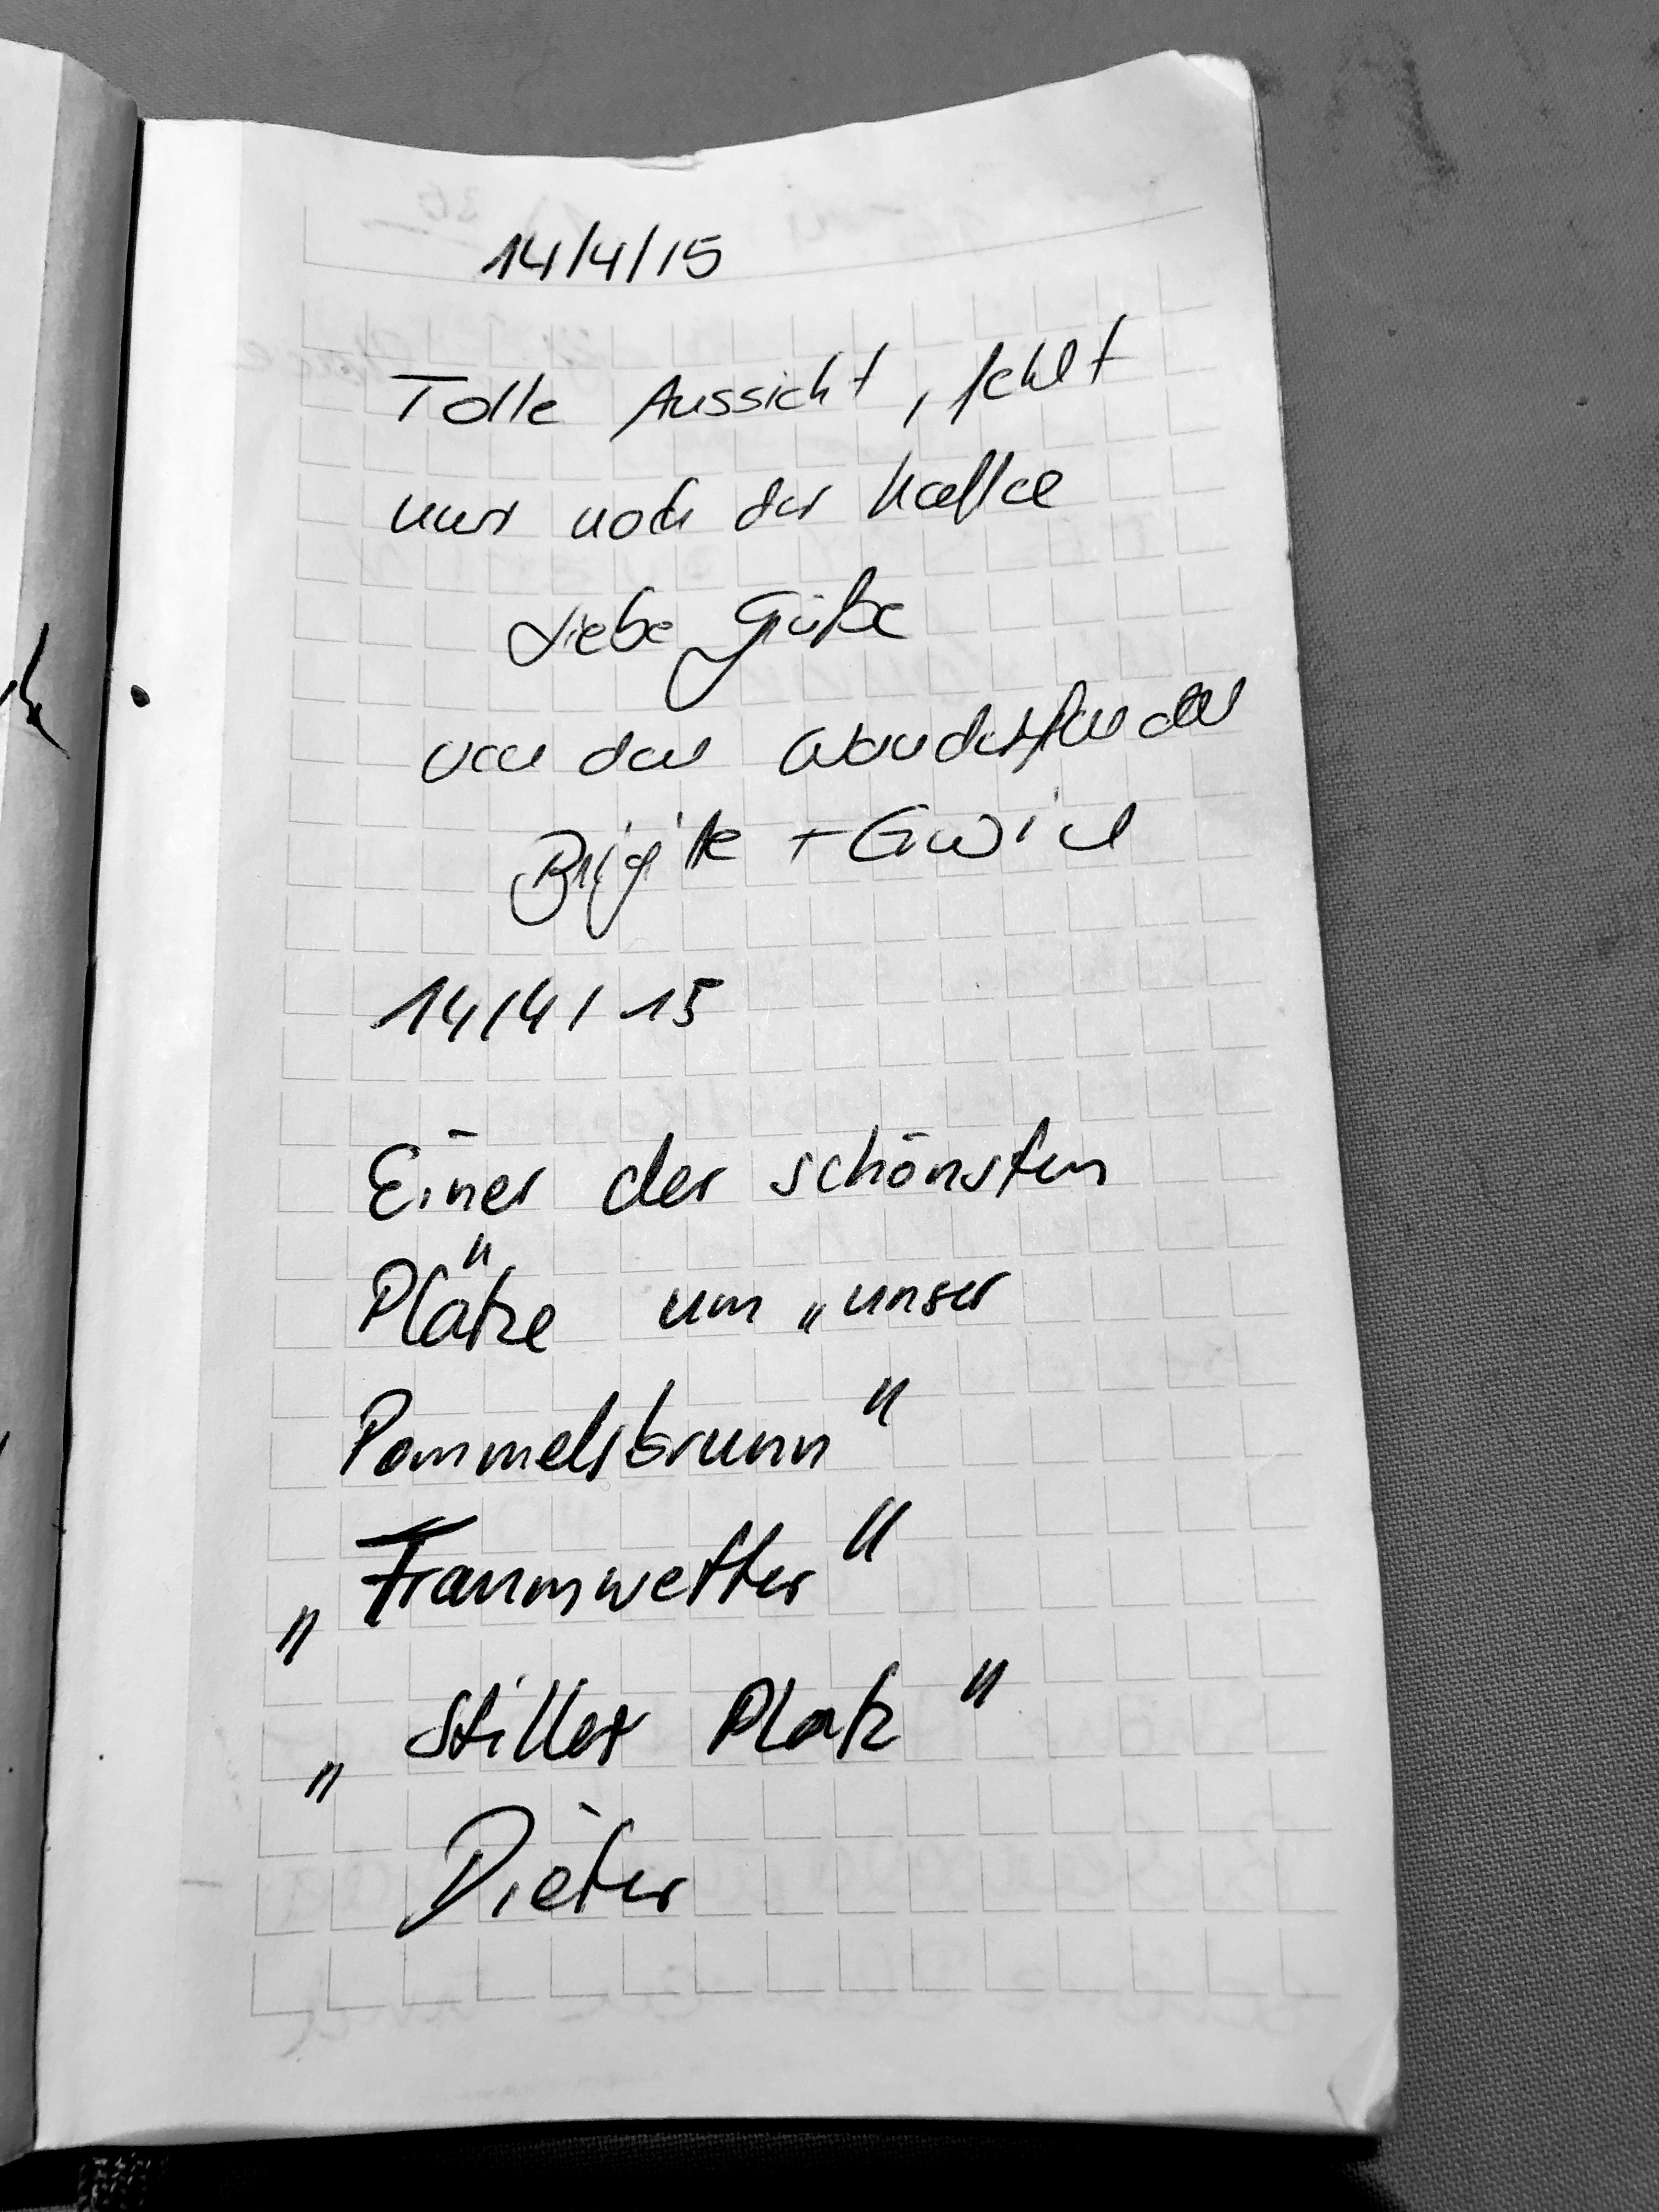 14/4/15
Tolle Aussicht, fehlt
nur noch der Kaffee
Liebe Grüße
von den
Brigitte + Erwin
14/4/15
Einer der schönsten
Plätze um „unser
Pommelsbrunn"
„Traumwetter"
„Stiller Platz"
Dieter